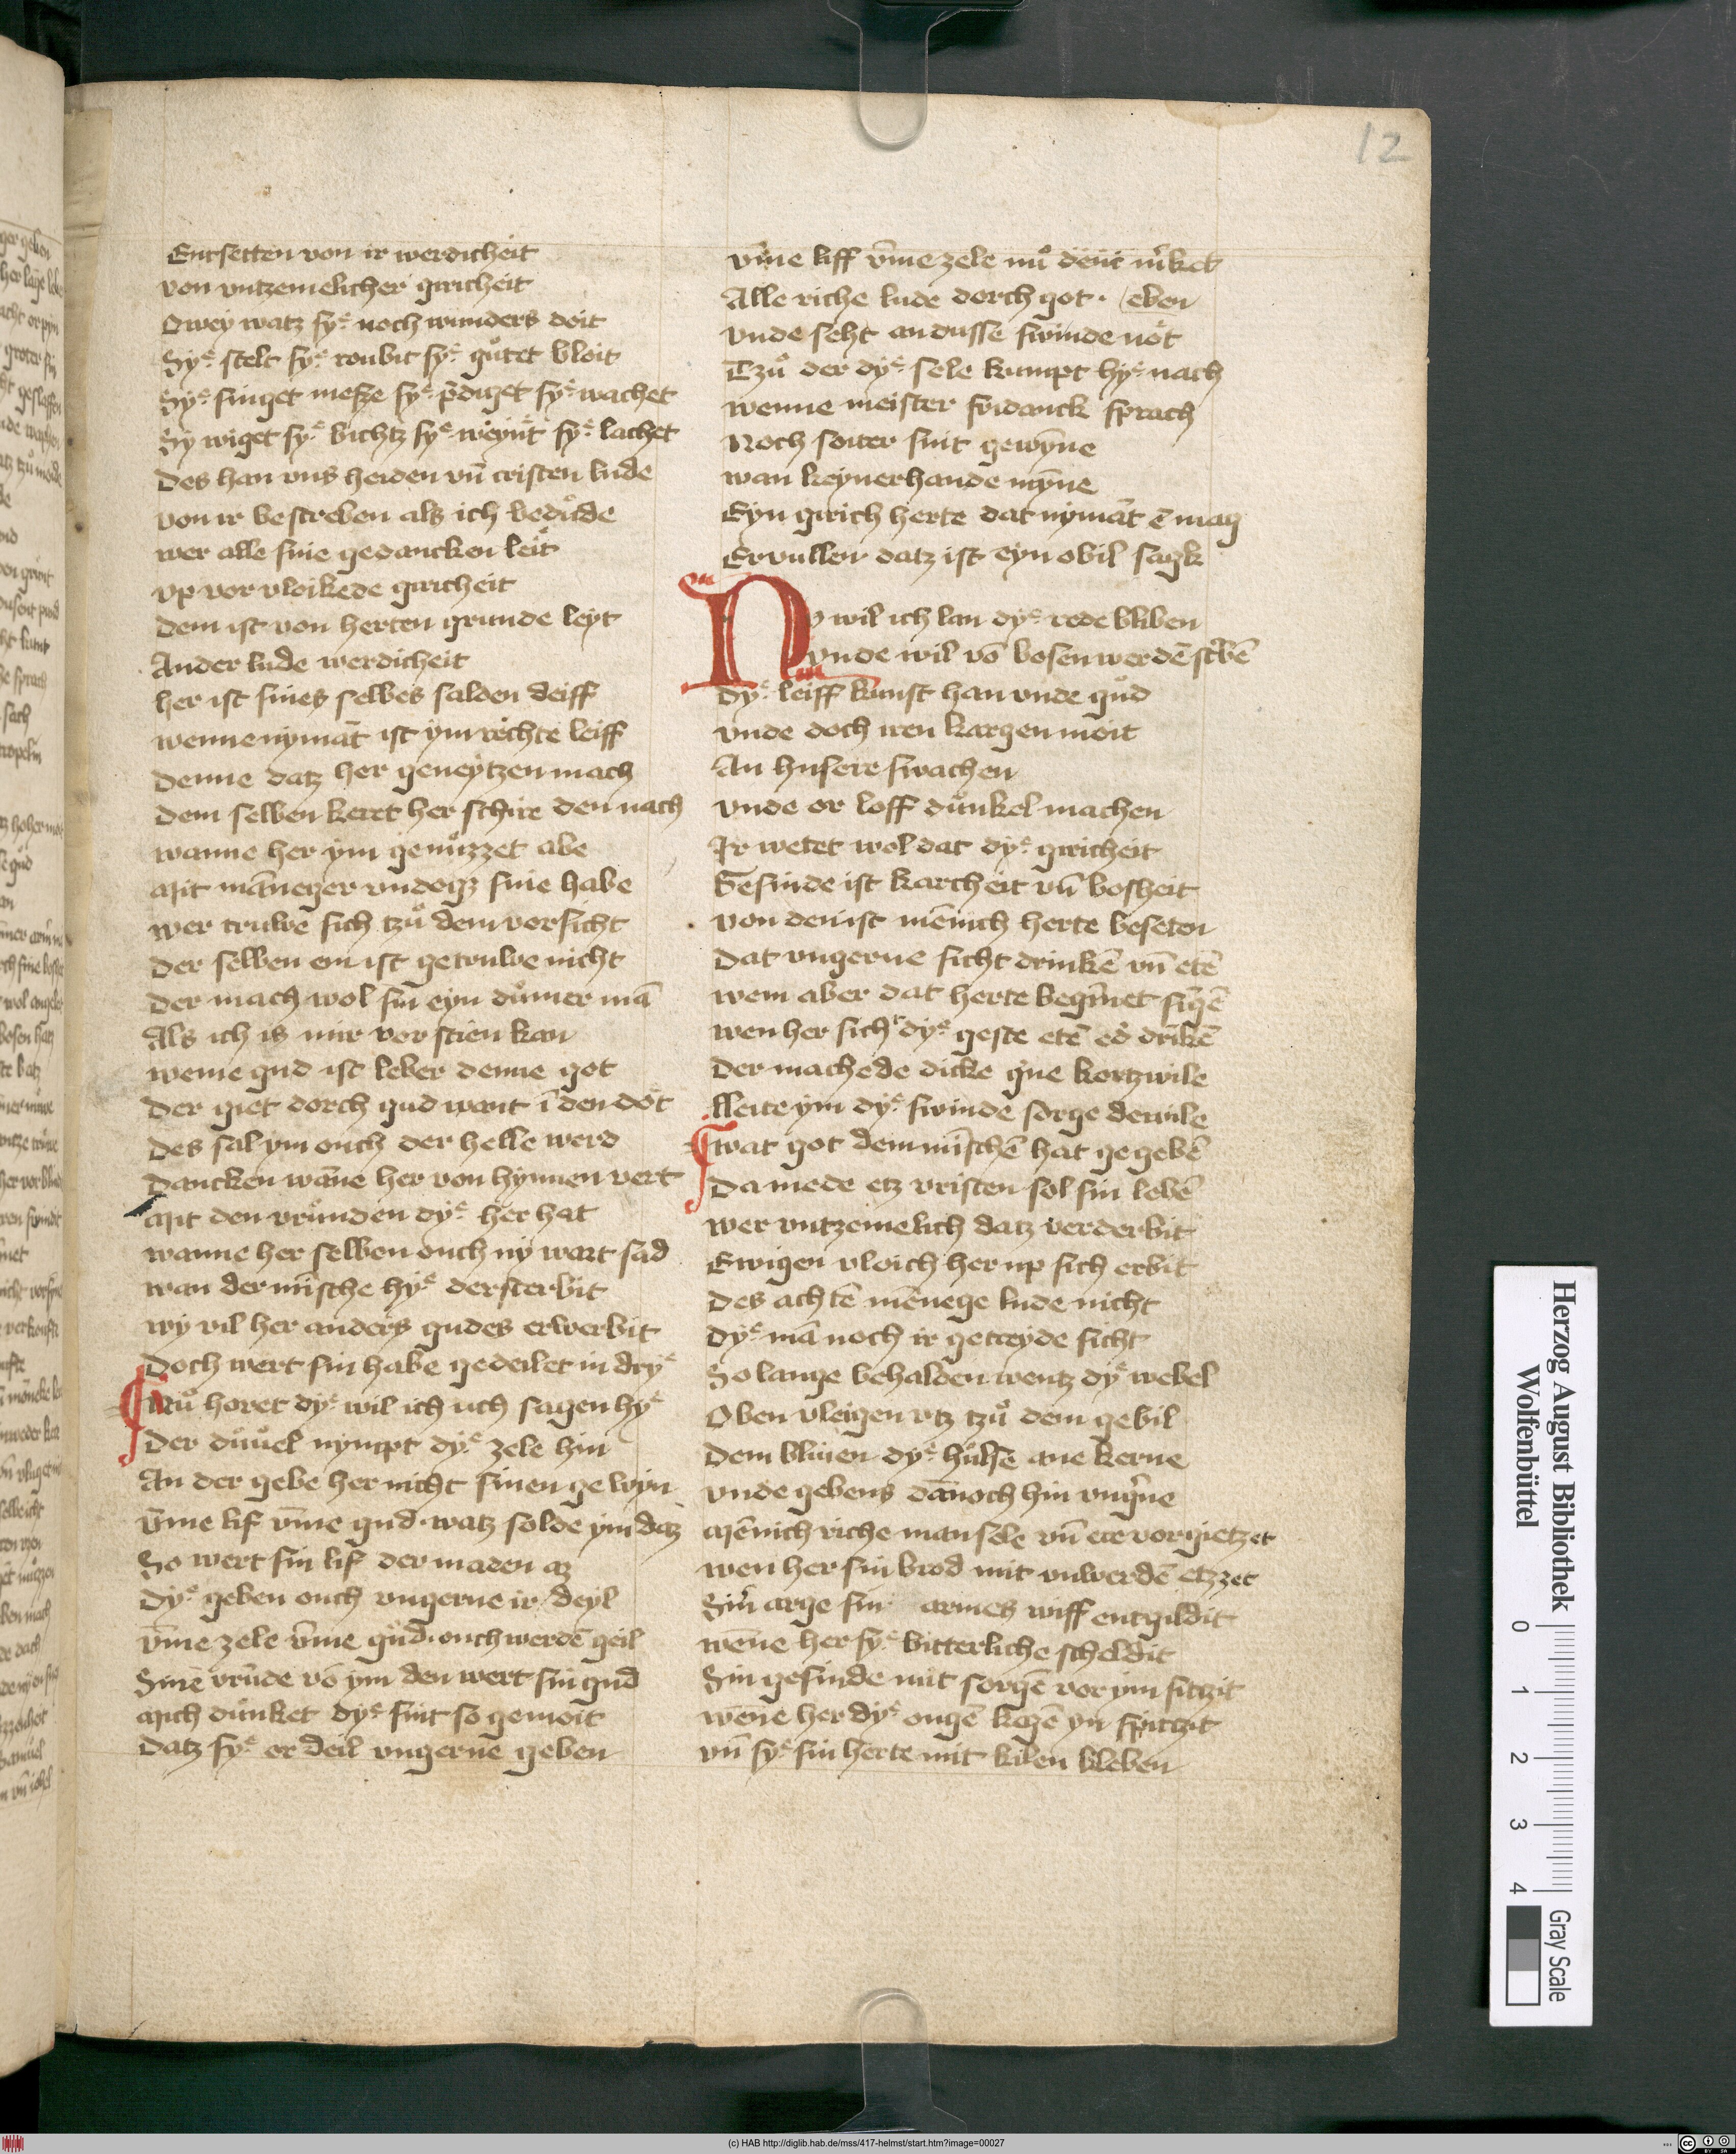 12
Entsetten von ir werdicheit
von vntzemelicher giricheit
Owey watz syͤ noch wunders doit
Syͤ stelt syͤ roubit syͤ guͦtet bloit
Syͤ singet mesze syͤ p̄diget syͤ wachet
Sy wiget syͤ bichtz syͤ weynͤt syͤ lachet
Des han vns heiden vn̄ cristen lude
von ir bescreben als ich beduͦde
wer alle sine gedancken leit
vp vor vloikede giricheit
Dem ist von herten grunde leyt
Ander lude werdicheit
her ist sines selbes salden deiff
wenne nyma͞t ist ym rechte leiff
Denne datz her geneytzen mach
Dem selben keret her schire den nach
wanne her ym genuͦzzet abe
Mit ma͞neger vndogz sine habe
wer truwe sich tzuͦ dem vorsicht
Der selben em ist getruwe nicht
Der mach wol sin eyn duͦmer ma͞
Als ich is mir vor stien kan
weme gud ist leber denne got
Der giet dorch gud want i͞ den dot
Des sal ym ouch der helle werd
Dancken wa͞ne her von hynnen vert
Mit den vruͦnden dyͤ her hat
wanne her selben ouch ny wart sad
wan der mi͞sche hyͤ dersterbit
wy vil her anders gudes erwerbit
Doch wert sin habe gedeilet in dryͤ
Nuͦ horet dyͤ wil ich uch sagen hyͤ
Der duͦuel nympt dyͤ zele hin
An der gebe her nicht sinen gewyn
v̄me lif v̄me gud. watz solde ym datz
So wert sin lif der maden az
Dyͤ geben ouch vngerne ir deyl
v̄me zele v̄me guͦd. ouch werde͞ geil
Sine͞ vru͞de vo͞ ym den wert sin gud
Mich duͦnket dyͤ sint so gemoit
Datz syͤ er deil vngerne geben
v̄me liff v̄me zele nuͦ
Alle riche lude dorch got. (eben
vnde seht an dusse swinde not
Tzuͦ der dyͤ sele kumpt hyͤ nach
wenne meister fridanck sprach
Noch soiter sint gewy͞ne
wan keynerhande my͞ne
Eyn girich herte dat nyma͞t e͞ mag
Ervullen datz ist eyn obil sagk
Ny wil ich lan dyͤ rede bliben
vnde wil vo͞ bosen werde͞ scͥbe͞
Dyͤ leiff kunst han vnde guͦd
vnde doch iren kargen moit
An husere swachen
vnde er loff duͦnkel machen
Ir wetet wol dat dyͤ giricheit
Gesinde ist karcheit vn̄ bosheit
von den ist me͞nich herte beseten
Dat vngerne sicht drinke͞ vn̄ ete͞
wem aber dat herte
wen her sich dyͤ geste ete͞ ed̓ dri͞ke͞
Der machede dicke kortzwile
lleite ym dyͤ swinde sorge dewile
wat got dem mi͞sche͞ hat gegebe͞
Da mede etz vristen sol sin lebe͞
wer vntzemelich datz verderbit
Ewigen vloich her up sich erbit
Des achte͞ me͞nege lude nicht
Dyͤ ma͞ noch ir getreyde sicht
So lange behalden wentz dyͤ webel
Oben vleigen vtz tzuͦ dem gebil
Dem bliuen dyͤ huͦlse ane kerne
vnde gebens da͞noch hin vng̓ne
Me͞nich riche man sele vn̄ ere vorgietzet
wen her sin brod mit vnwerde͞ etzzet
Sin̓ arge sin armes wiff entgildit
we͞ne her syͤ bitterliche scheldit
Sin gesinde mit sorge͞ vor ym sitzit
we͞ne her dyͤ ouge͞ kege͞ yn spitzit
vn̄ syͤ sin herte mit kilen kleben
Herzog August Bibliothek
Wolfenbüttel
0 1 2 3 4
Gray Scale
(c) HAB http://diglib.hab.de/mss/417-helmst/start.htm?image=00027